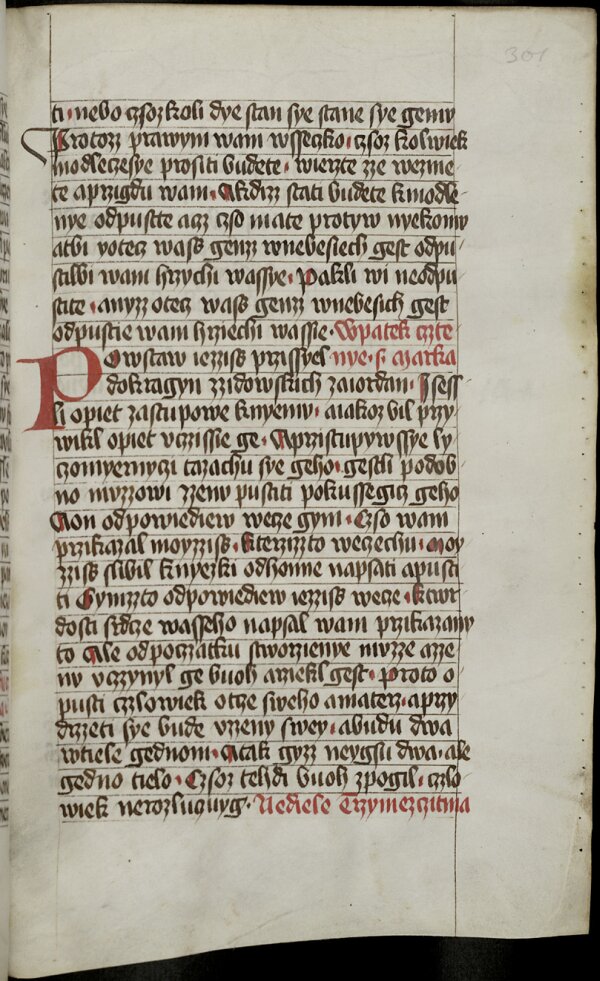 301
ti · nebo czsoz koli dye stan sye stane sye gemv
Protozz prawym wam wsseczko · czsoz kolwiek
modleczesye prositi budete · wierzte zze wezme
te aprzigdu wam · Akdizz stati budete kmodle
nye odpustte acz czso mate protyw nyekomv
atbi yotecz wass genzz wnebesiech gest odpu
stilbi wam hrzychi wassye · Pakli wi neodpu
stite · anyzz otecz wass genzz wnebesich gest
odpustie wam hrziechi wassie · Wpatek czte
Powstaw iezziss przissyel nye · s · Marka
dokragyn zzidowskich zaiordan · Isess
li opiet zastupowe knyemv · aiakoz bil przy
wikl opiet vczissie ge · Aprzistupywssye ly
czomyernyczi tazachu sye geho · gestli podob
no muzzowi zzenv pustiti pokussegicz geho
Aon odpowiediew wecze gym · Czso wam
przikazal moyzziss · kterzizto weczechu · Moy
zziss slibil knyezki odhonne napsati apusti
ti Gymzto odpowiediew iezziss wecze · ktwr
dosti srdcze wasseho napsal wam przikazany
to Ale odpoczatku stworzienye muzze azze
nv vczynyl ge buoh arziekl gest · Proto o
pusti czlowiek otcze sweho amaterz · aprzy
drzzeti sye bude vzzeny swey · abudu dwa
wtiele gednom · Atak gyzz neygsu dwa · ale
gedno tielo · Czsoz tehdi buoh zpogil · czlo
wiek nerozluczuyg · Nediele Trzymezczitma